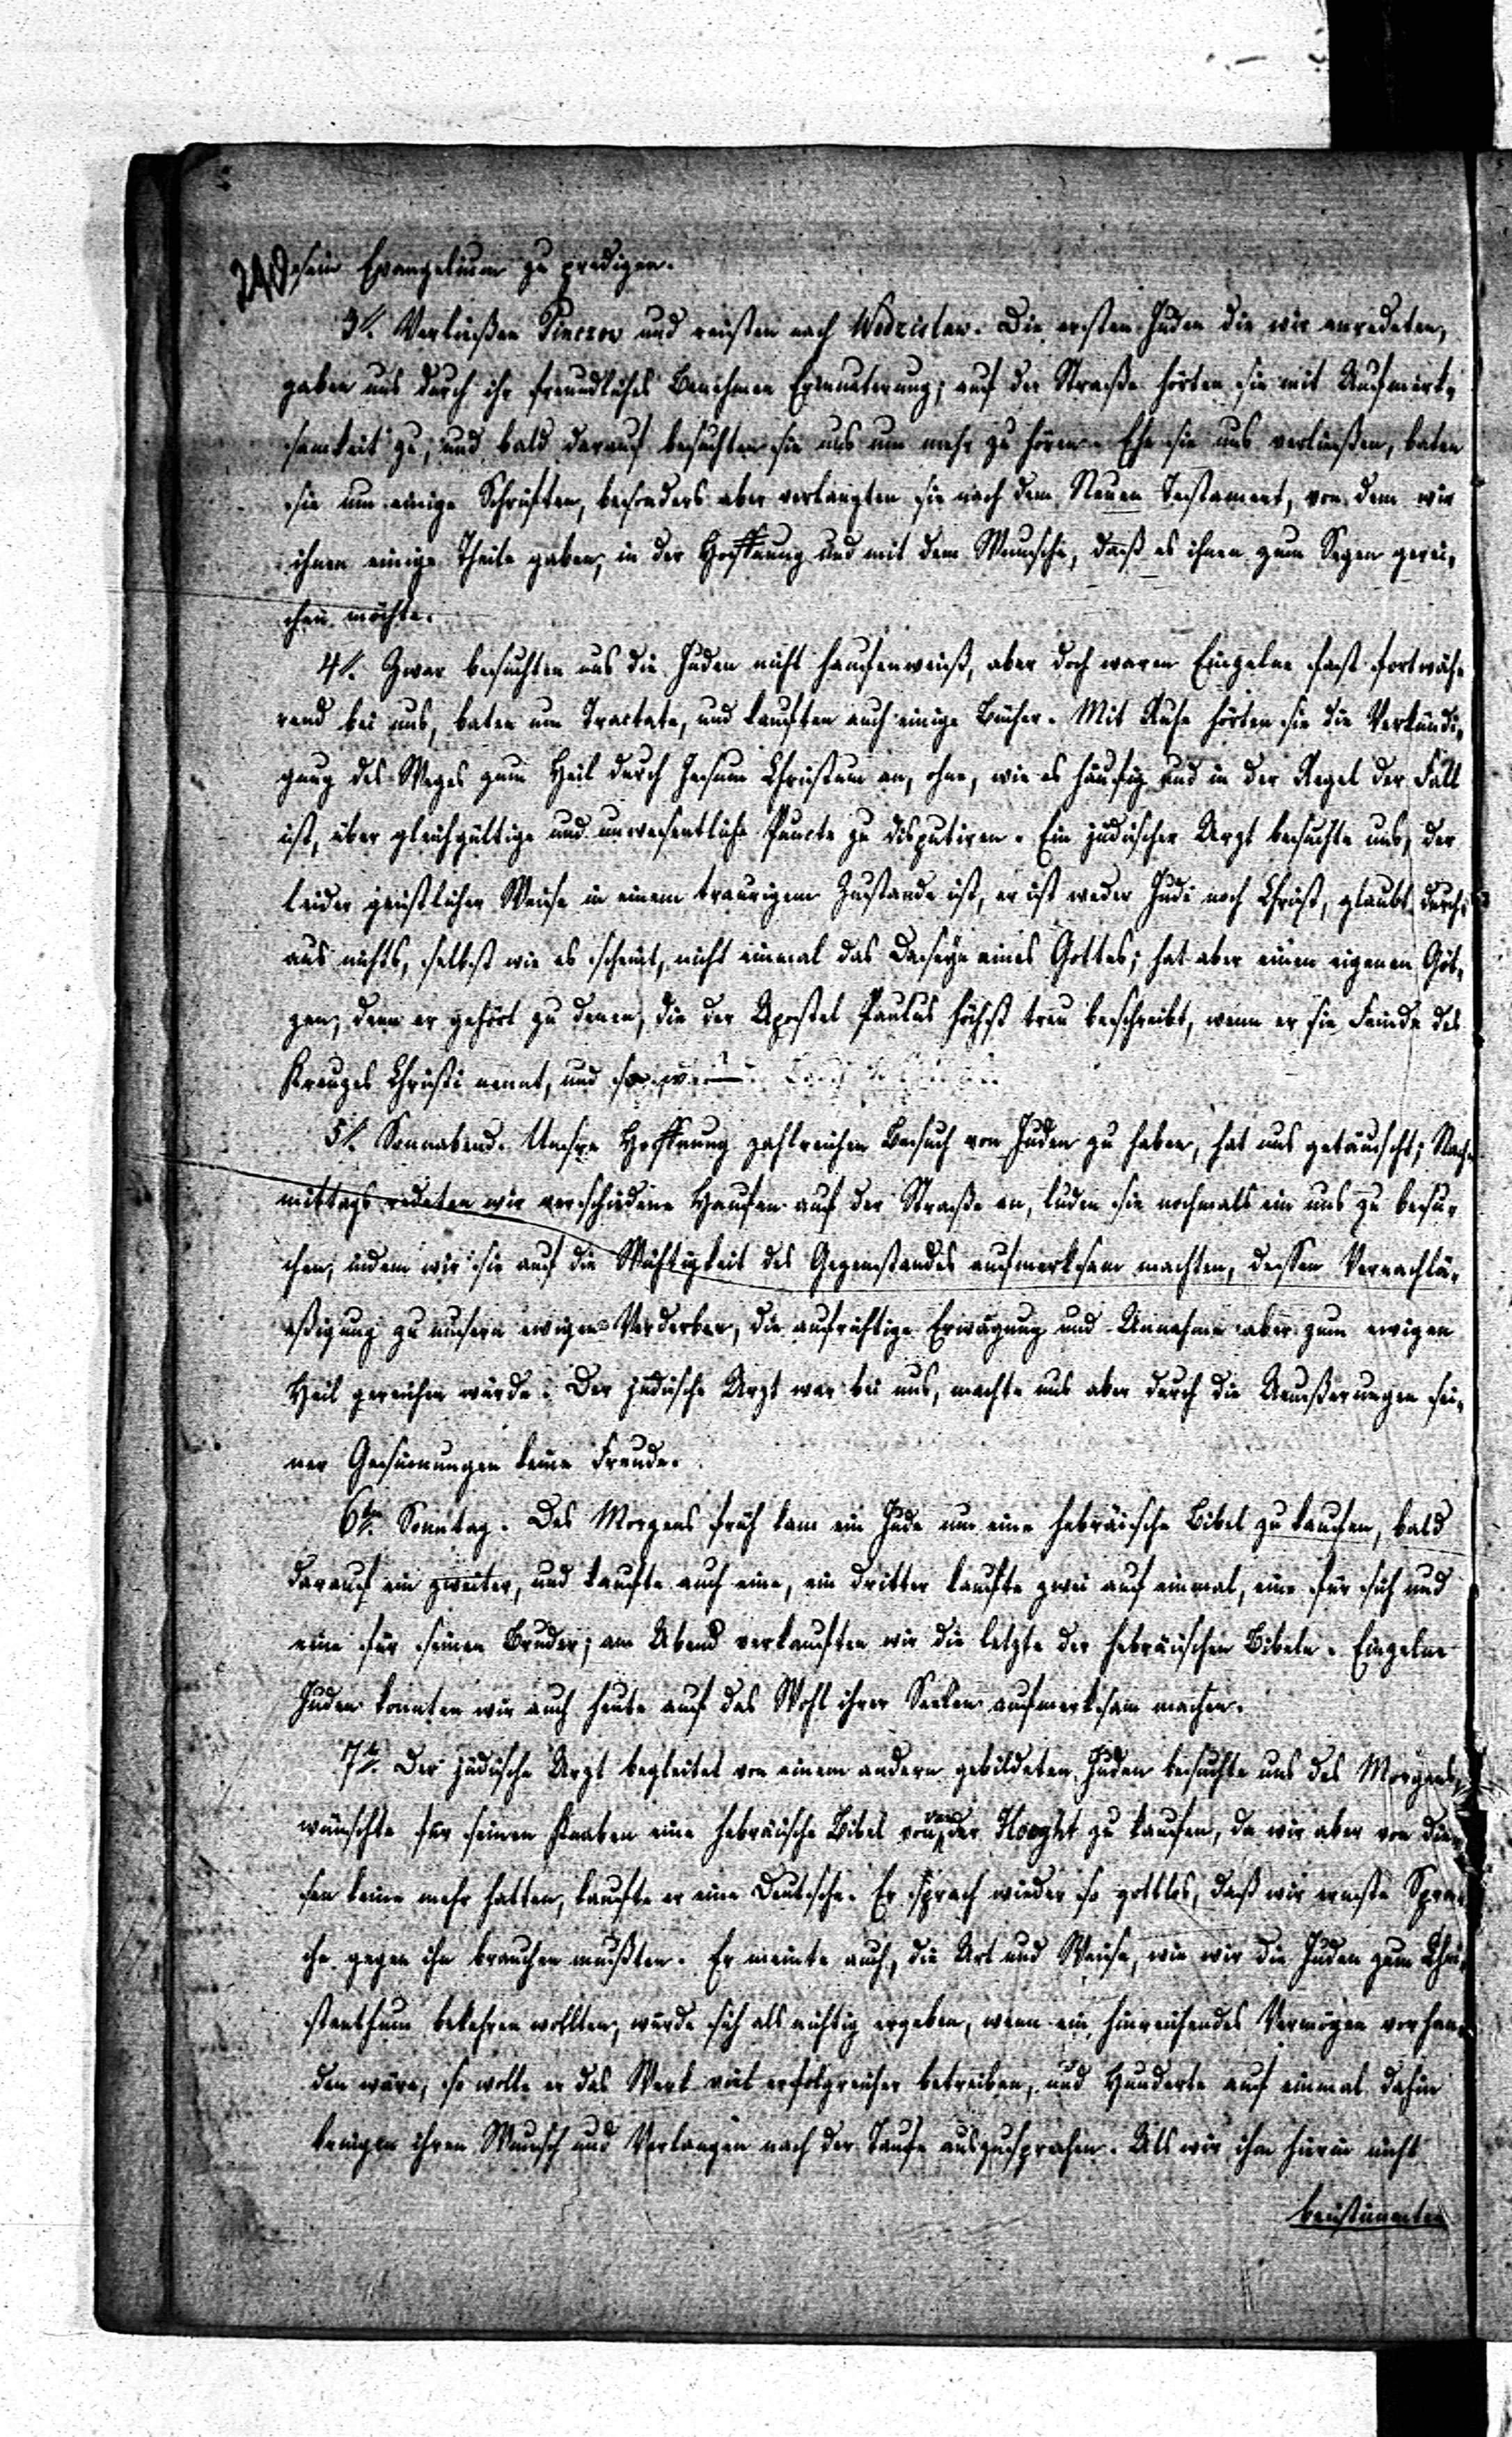 240 sein Evangelium zu predigen.
3t. Verließen Pinczow und reisten nach Wodzislaw. Die ersten Juden die wir anredeten,
gaben uns durch ihr freundliches Benehmen Ermunterung; auf der Straße hörten sie mit Aufmerk-
samkeit zu, und bald darauf besuchten sie uns um mehr zu hören. Ehe sie uns verließen, baten
sie um einige Schriften, besonders aber verlangten sie nach dem Neuen Testament, von dem wir
ihnen einige Theile gaben, in der Hoffnung und mit dem Wunsche, daß es ihnen zum Segen gerei-
chen möchte.
4t. Zwar besuchten uns die Juden nicht haufenweiß, aber doch waren Einzelne fast fortwäh-
rend bei uns, baten um Tractate, und kauften auch einige Bücher. Mit Ruhe hörten sie die Verkündi-
gung des Weges zum Heil durch Jesum Christum an, ohne, wie es häufig und in der Regel der Fall
ist, über gleichgültige und unwesentliche Puncte zu disputiren. Ein jüdischer Arzt besuchte uns, der
leider geistlicher Weise in einem traurigem Zustande ist, er ist weder Jude noch Christ, glaubt durch-
aus nichts, selbst wie es scheint, nicht einmal das Daseyn eines Gottes; hat aber einen eigenen Göt-
zen, denn er gehört zu denen, die der Apostel Paulus höchst treu beschreibt, wenn er sie Feinde des
Kreuzes Christi nennt, und
5t. Sonnabend. Unsre Hoffnung zahlreichen Besuch von Juden zu haben, hat uns getäuscht; Nach-
mittags redeten wir verschiedene Haufen auf der Straße an, luden sie nochmals ein uns zu besu-
chen, indem wir sie auf die Wichtigkeit des Gegenstandes aufmerksam machten, dessen Vernachlä-
ßigung zu unsern ewigen Verderben, die aufrichtige Erwägung und Annahme aber zum ewigen
Heil gereichen würde. Der jüdische Arzt war bei uns, machte uns aber durch die Aeußerungen sei-
ner Gesinnungen keine Freude.
6ten. Sonntag. Des Morgens früh kam ein Jude um eine hebräische Bibel zu kaufen, bald
darauf ein zweiter, und kaufte auch eine, ein dritter kaufte zwei auf einmal, eine für sich und
eine für seinen Bruder; am Abend verkauften wir die letzte der hebräischen Bibeln. Einzelne
Juden konnten wir auch heute auf das Wohl ihrer Seelen aufmerksam machen.
7te. Der jüdische Arzt begleitet von einem andern gebildeten Juden besuchte uns des Morgens,
wünschte für seinen Knaben eine hebräische Bibel von van der Hooght zu kaufen, da wir aber von die-
sen keine mehr hatten, kaufte er eine Deutsche. Er sprach wieder so gottlos, daß wir ernste Spra-
che gegen ihn brauchen mußten. Er meinte auch, die Art und Weise, wie wir die Juden zum Chri-
stenthum bekehren wollten, würde sich als nichtig ergeben, wenn ein hinreichendes Vermögen vorhan-
den wäre, so wolle er das Werk viel erfolgreicher betreiben, und Hunderte auf einmal dahin
bringen ihren Wunsch und Verlangen nach der Taufe auszusprechen. Als wir ihm hierin nicht
beistimmten